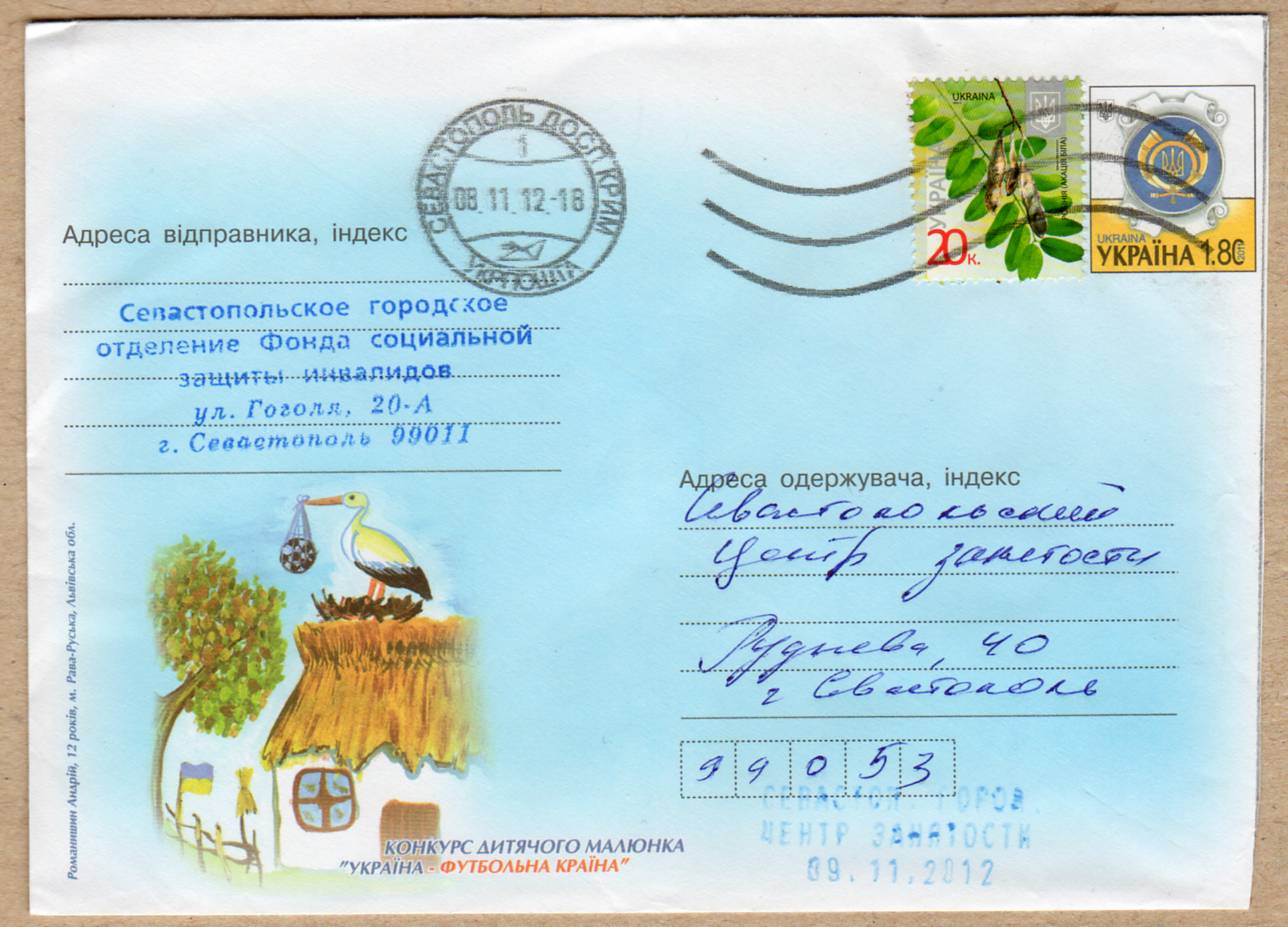 СЕВАСТОПОЛЬ ДОСП КРИМ
1
08.11.12-18
УКРПОШТА
UKRAINA
УКРАЇНА
(АКАЦІЯ БІЛА)
20к.
UKRAINA
УКРАЇНА 1.80
Адреса відправника, індекс
Севастопольское городское
отделение Фонда социальной
защиты инвалидов
ул. Гоголя, 20-А
г. Севастополь 99011
Адреса одержувача, індекс
Севастопольский
Центр занятости
Руднева, 40
г Севастополь
99053
СЕВАСТОП. ГОРОД.
ЦЕНТР ЗАНЯТОСТИ
09.11.2012
Романишин Андрій, 12 років, м. Рава-Руська, Львівська обл.
КОНКУРС ДИТЯЧОГО МАЛЮНКА
"УКРАЇНА - ФУТБОЛЬНА КРАЇНА"